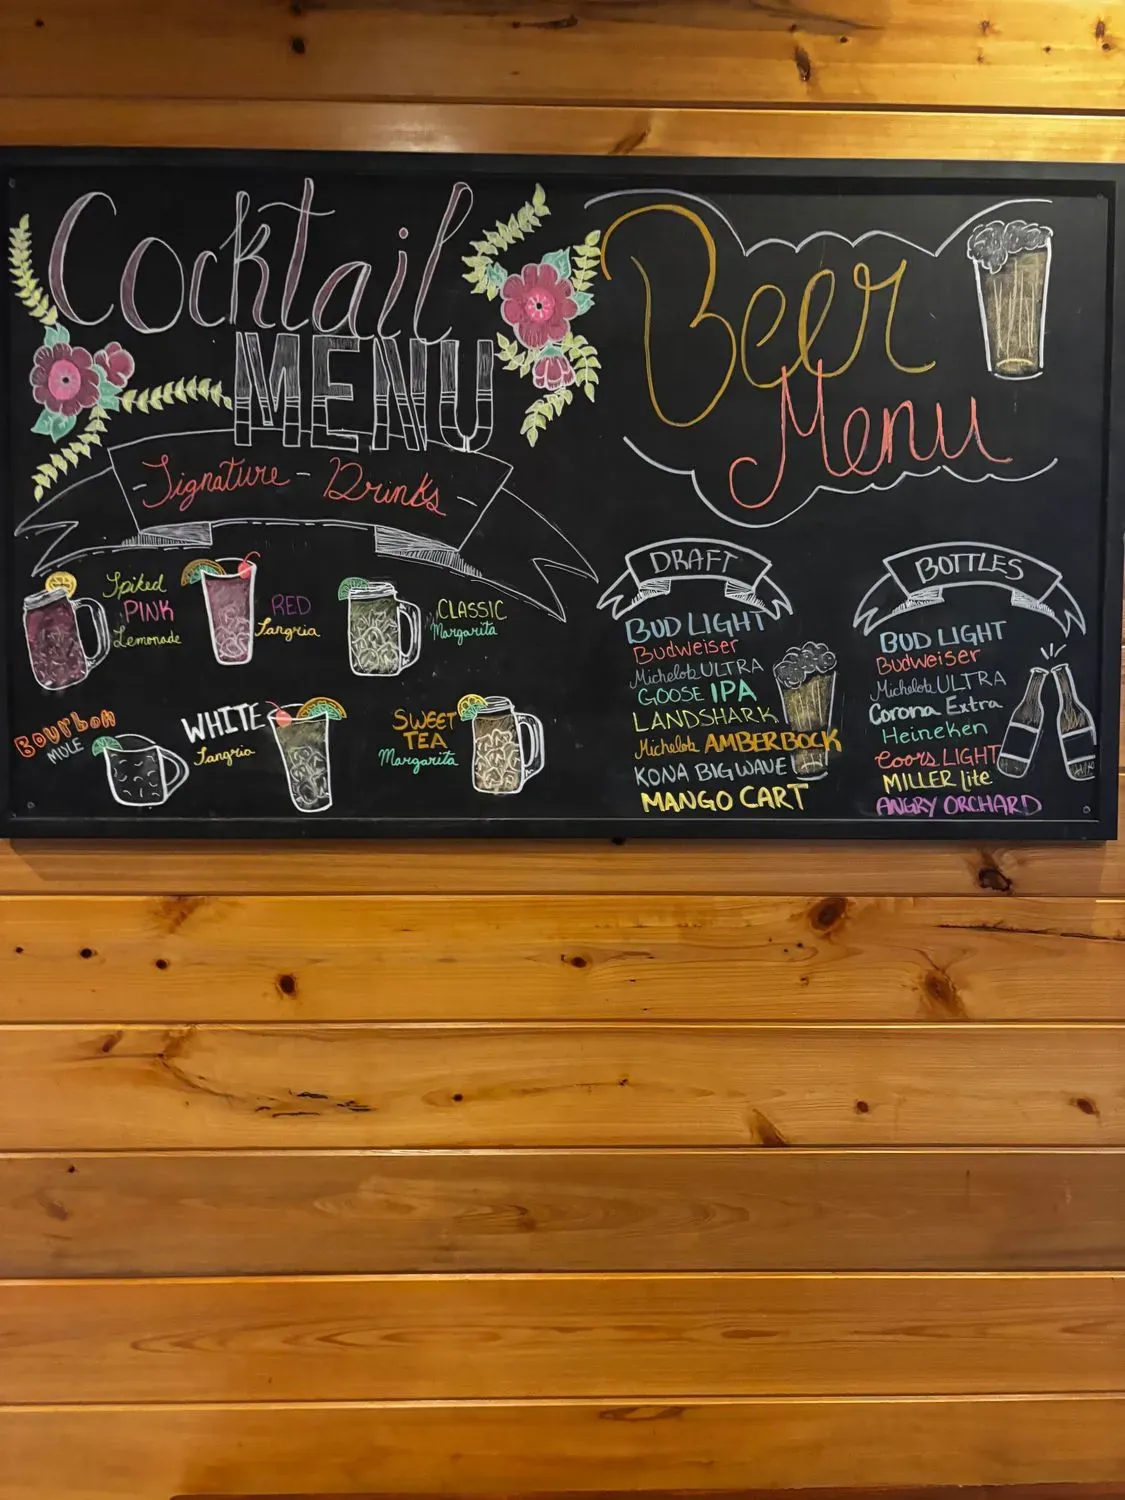 Cocktail
MENU
Signature - Drinks
Spiked
PINK
Lemonade
RED
Sangria
CLASSIC
Margarita
Bourbon
MULE
WHITE
Sangria
SWEET
TEA
Margarita
Beer
Menu
DRAFT
BUD LIGHT
Budweiser
Michelob ULTRA
GOOSE IPA
LANDSHARK
Michelob AMBER BOCK
KONA BIG WAVE
MANGO CART
BOTTLES
BUD LIGHT
Budweiser
Michelob ULTRA
Corona Extra
Heineken
Coors LIGHT
MILLER lite
ANGRY ORCHARD